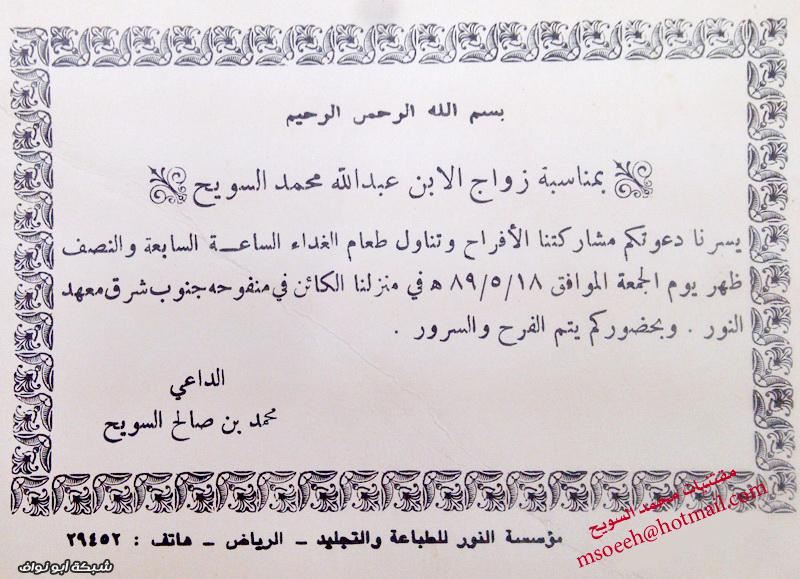 بسم الله الرحمن الرحيم
بمناسبة زواج الابن عبدالله محمد السويح
يسرنا دعوتكم مشاركتنا الأفراح وتناول طعام الغداء الساعــة السابعة والنصف
ظهر يوم الجمعة الموافق ٨٩/٥/١٨ ه في منزلنا الكائن في منفوحه جنوب شرق معهد
النور . وبحضوركم يتم الفرح والسرور .
الداعي
محمد بن صالح السويح
مقتنيات محمد السويح
msoeeh@hotmail.com
مؤسسة النور للطباعة والتجليد ـ الرياض ـ هاتف : ٢٩٤٥٢
شبكة أبو نواف